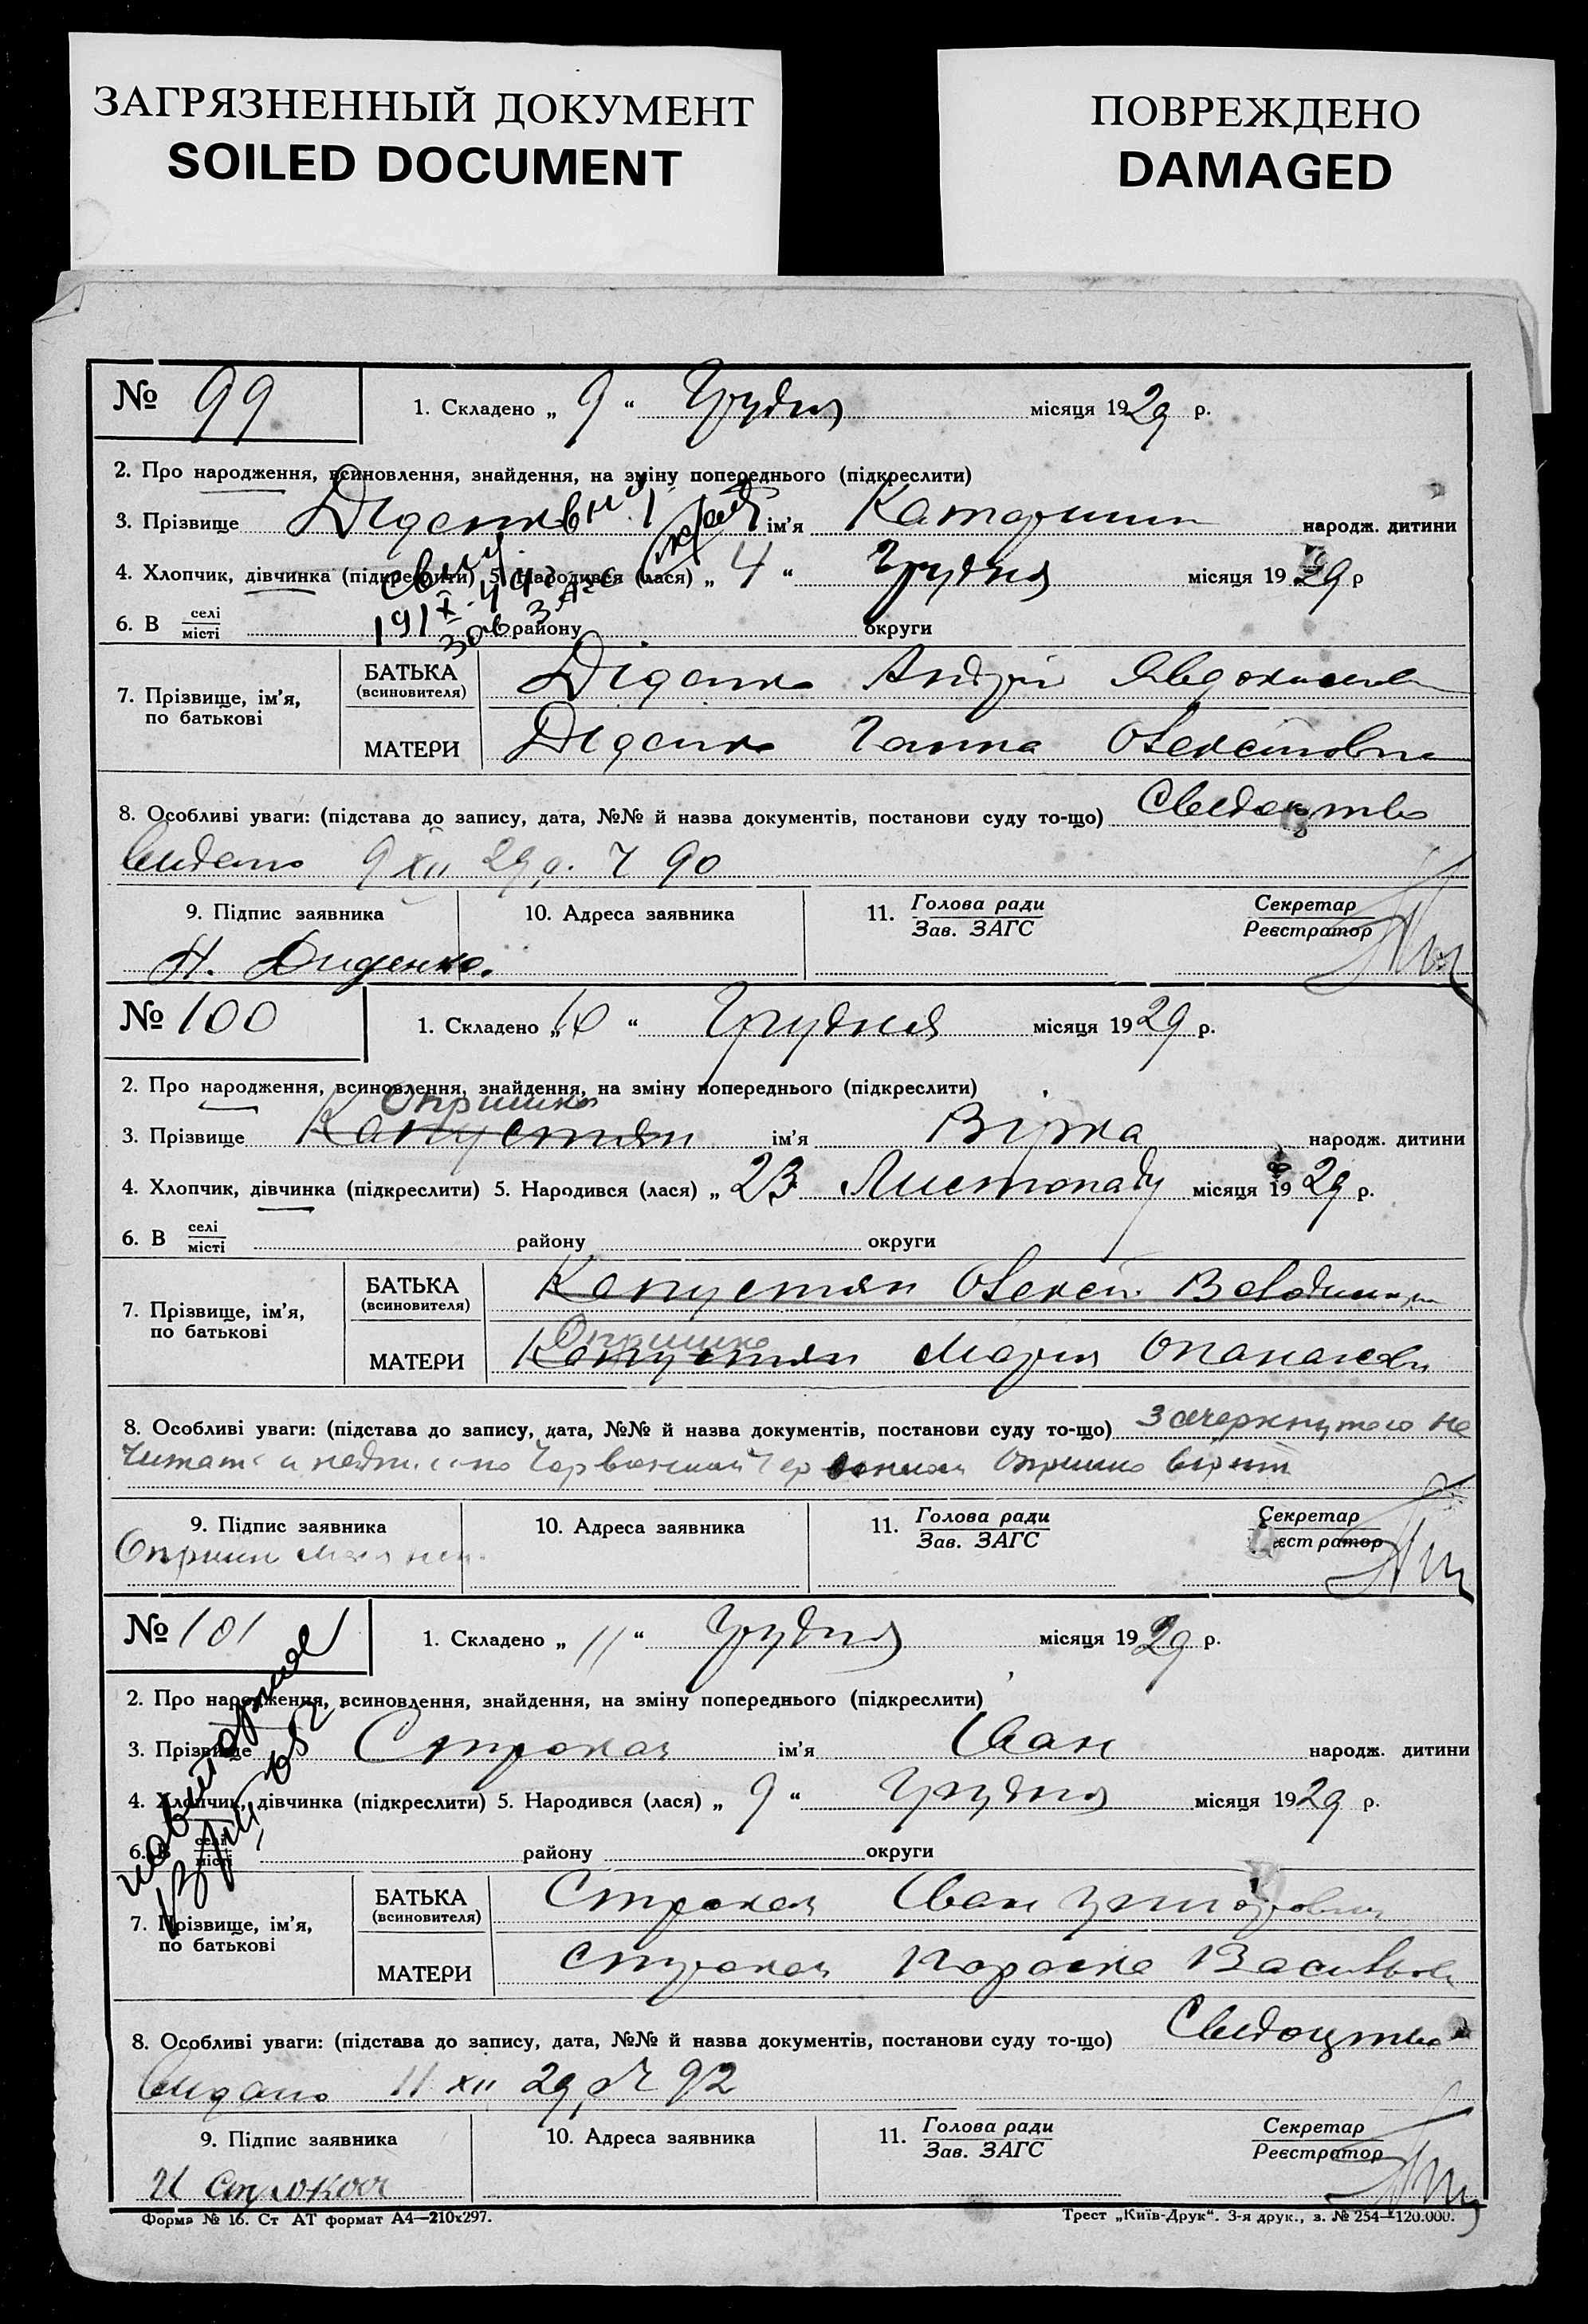 ЗАГРЯЗНЕННЫЙ ДОКУМЕНТ
SOILED DOCUMENT
ПОВРЕЖДЕНО
DAMAGED
№ 99
1. Складено „ 9 “ Грудня місяця 1929 р.
2. Про народження, всиновлення, знайдення, на зміну попереднього (підкреслити)
3. Прізвище ім'я Катерина народж. дитини
4. Хлопчик, дівчинка (підкреслити) 5. Народився (лася) „ 4 “ Грудня місяця 1929 р
6. В селі місті району округи
7. Прізвище, ім'я, по батькові
БАТЬКА (всиновителя) Діденко Андрій
МАТЕРИ Діденко Ганна
8. Особливі уваги: (підстава до запису, дата, №№ й назва документів, постанови суду то-що) Свидоцтво
видано 9 XII 29 р. 90
9. Підпис заявника 10. Адреса заявника 11. Голова ради Зав. ЗАГС Секретар Реєстратор
А. Диденко.
№ 100
1. Складено „ 10 “ Грудня місяця 1929 р.
2. Про народження, всиновлення, знайдення, на зміну попереднього (підкреслити)
Опришко
3. Прізвище Капустян ім'я Вірка народж. дитини
4. Хлопчик, дівчинка (підкреслити) 5. Народився (лася) „ 23 Листопаду місяця 1929 р.
6. В селі місті району округи
7. Прізвище, ім'я, по батькові
БАТЬКА (всиновителя) Капустян Олексій
Опришко
МАТЕРИ Капустян Мария
8. Особливі уваги: (підстава до запису, дата, №№ й назва документів, постанови суду то-що) Зачеркнутого не
читать Опришко вірить
9. Підпис заявника 10. Адреса заявника 11. Голова ради Зав. ЗАГС Секретар
№ 101
1. Складено „ 11 “ Грудня місяця 1929 р.
2. Про народження, всиновлення, знайдення, на зміну попереднього (підкреслити)
3. Прізвище Строкач ім'я Іван народж. дитини
4. Хлопчик, дівчинка (підкреслити) 5. Народився (лася) „ 9 “ Грудня місяця 1929 р.
6. В селі місті району округи
7. Прізвище, ім'я, по батькові
БАТЬКА (всиновителя) Строкач Іван
МАТЕРИ Строкач Параска
8. Особливі уваги: (підстава до запису, дата, №№ й назва документів, постанови суду то-що) Свидоцтво
видано 11 XII 29 р. 92
9. Підпис заявника 10. Адреса заявника 11. Голова ради Зав. ЗАГС Секретар Реєстратор
И Строкач
Форма № 16. Ст АТ формат А4—210х297.
Трест „Київ-Друк“. 3-я друк., з. № 254—120.000.